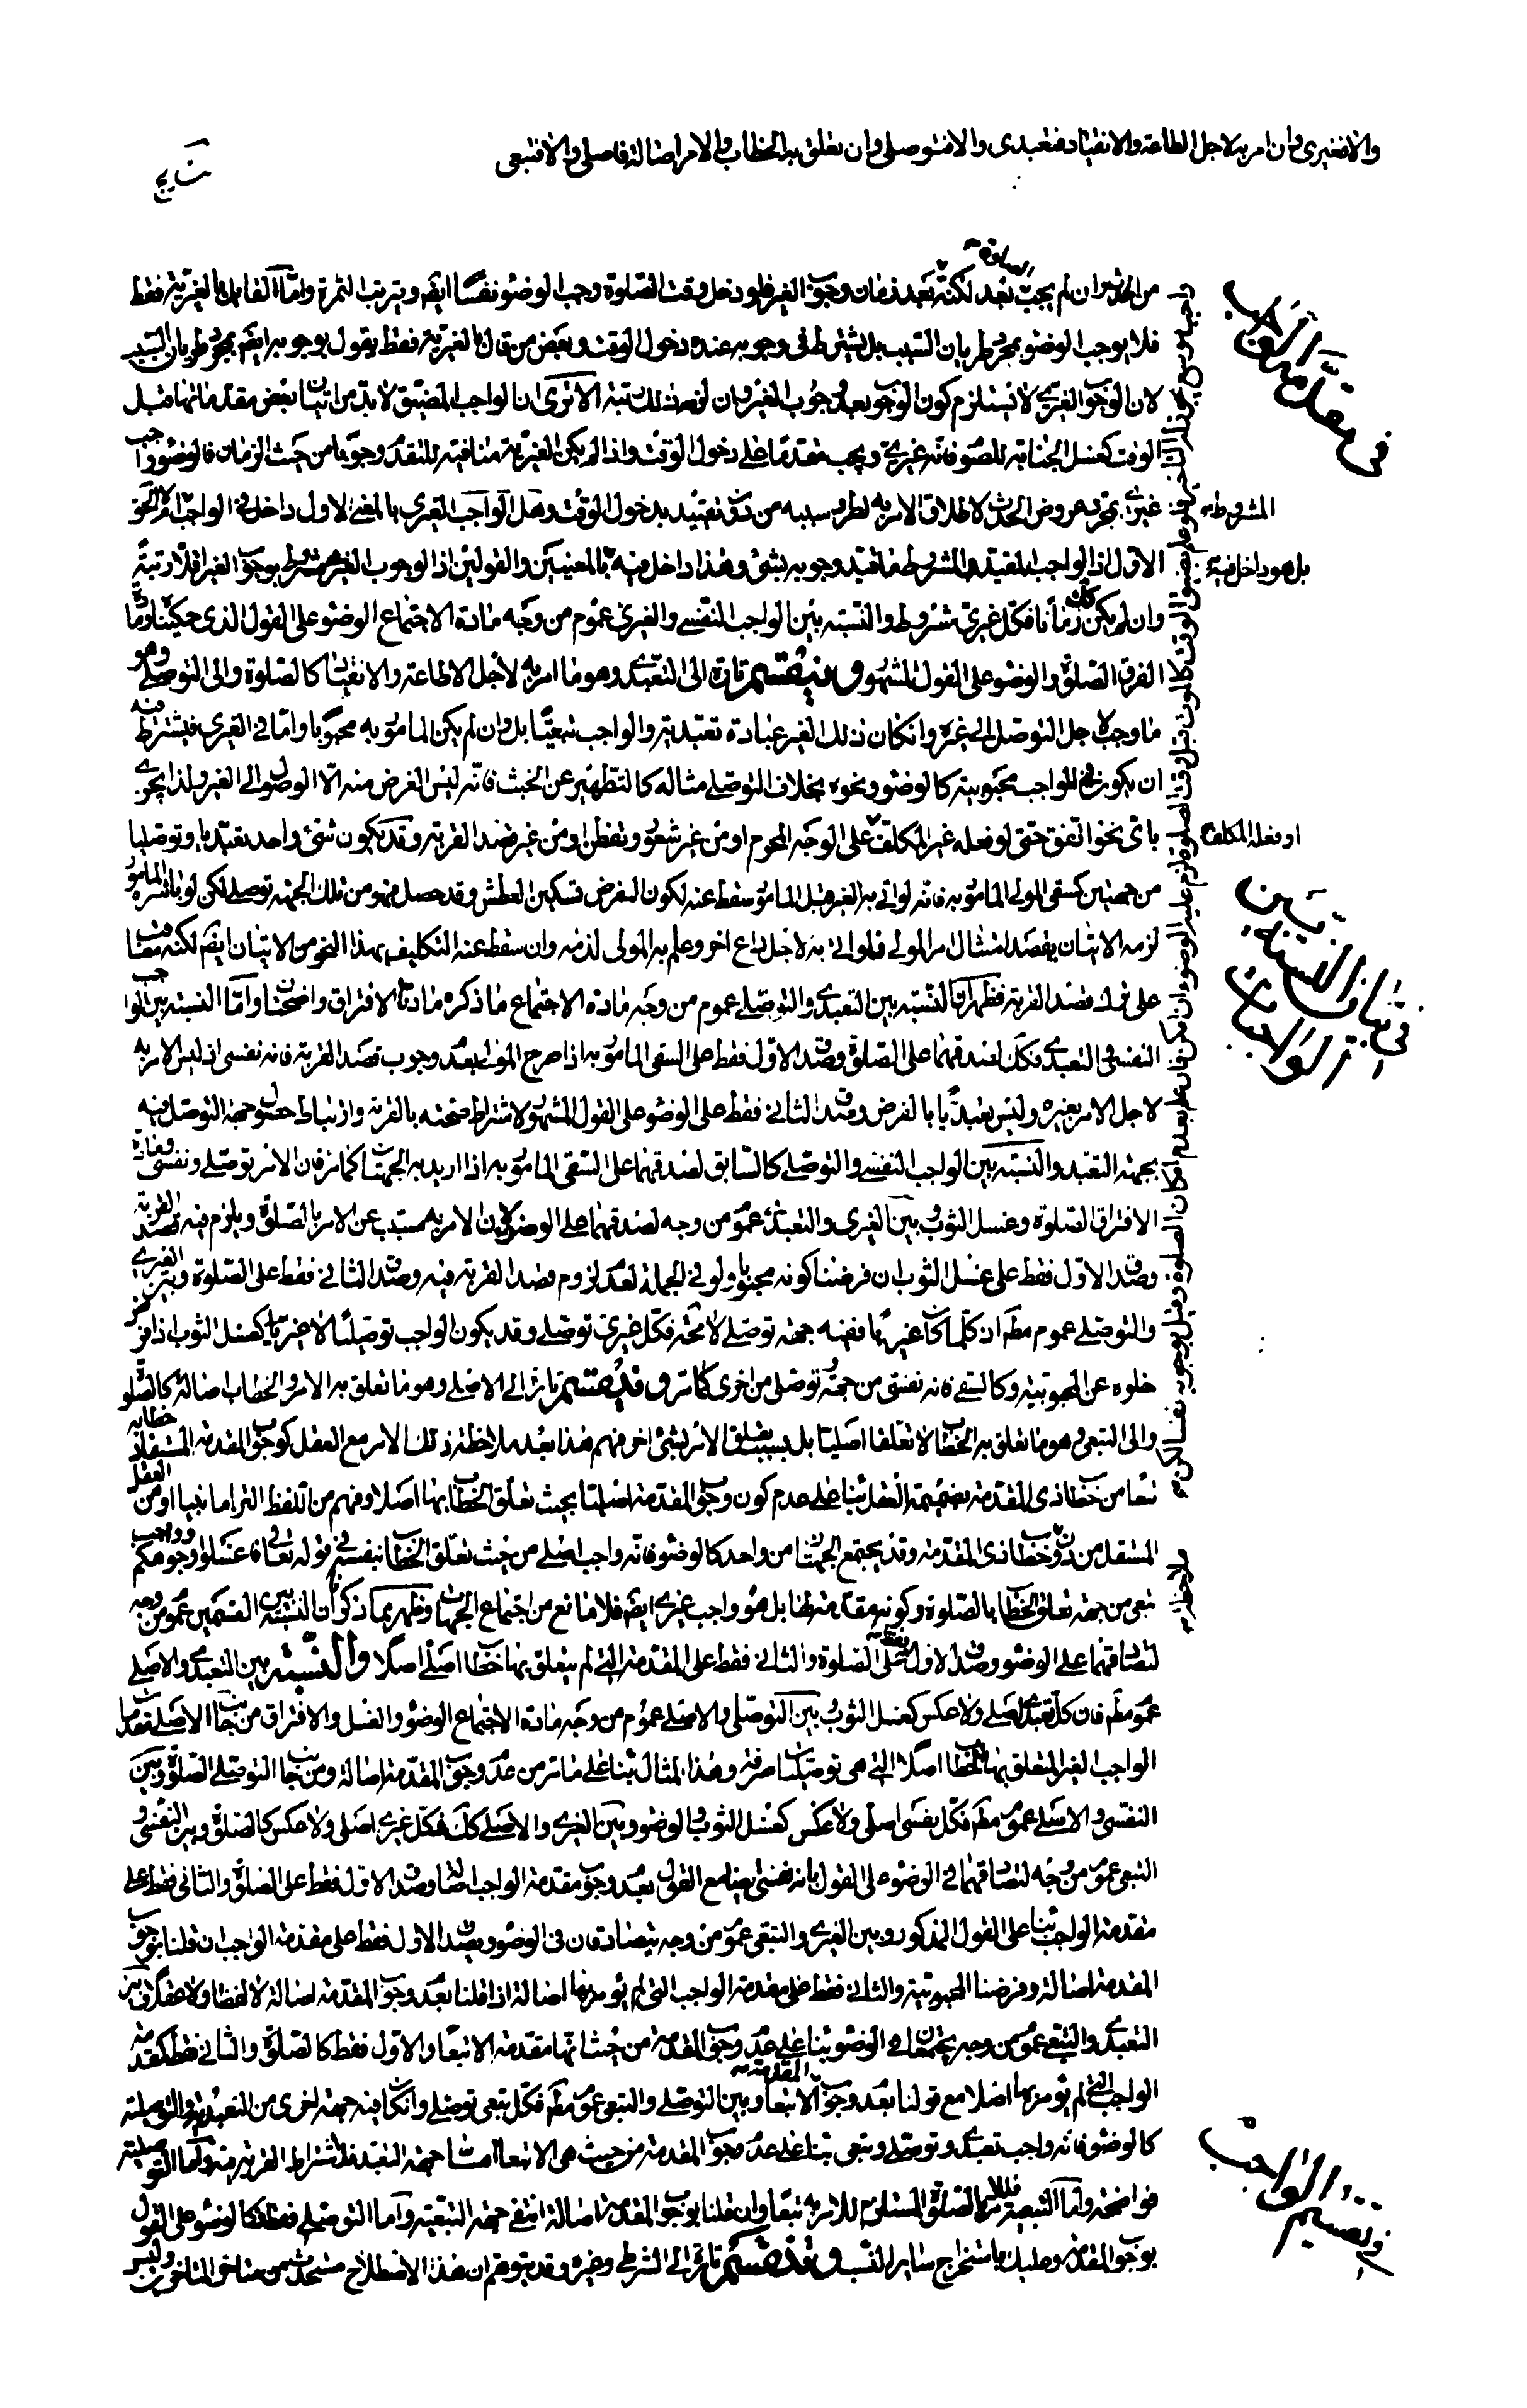 والا فغيري وان امر به لاجل الطاعة والانقياد فتعبدي والا فتوصلي وان تعلق به الخطاب والامر اصالة فاصلي والا فتبعي
نتايج
في مقدمة الواجب
من الحدث وان لم يجب بعد لكنه بعد زمان وجوب الغير فلو دخل وقت الصلوة وجب الوضوء نفسًا ايضًا ويترتب الثمرة واما القائل بالغيرية فقط
فلا يوجب الوضوء بمجرد طريان السبب بل يشترط في وجوبه عنده دخول الوقت وبعض من قال بالغيرية فقط يقول بوجوبه ايضًا بمجرد طريان السبب
لان الوجوب الغيري لا يستلزم كون الوجوب بعد وجوب الغير وان لزم ذلك رتبة الا ترى ان الواجب المضيق لا بد من اتيان بعض مقدماتها قبل
الوقت كغسل الجنابة للصوم فانه غيري ويجب مقدمًا على دخول الوقت واذا لم يكن الغيرية منافية للتقدم وجوبا من حيث الزمان فالوضوء واجب
غيري بمجرد عروض الحدث لاطلاق الامر به لطرو سببه من دون تقييد بدخول الوقت وهل الواجب الغيري بالمعنى الاول داخل في الواجب
المشروط
الاول اذ الواجب المقيد والمشروط ما قيد وجوبه بشئ وهذا داخل فيه بالمعنيين والقولين اذ الوجوب الغيري مشروط بوجوب الغير اقلا رتبة
بل هو داخل فيه
وان لم يكن زمانًا فكل غيري مشروط والنسبة بين الواجب النفسي والغيري عموم من وجه مادة الاجتماع الوضوء على القول الذي حكيناه ومادتا
الفرق الصلوة والوضوء على القول المشهور وينقسم تارة الى التعبدي وهو ما امر به لاجل الاطاعة والانقياد كالصلوة والى التوصلي وهو
ما وجب لاجل التوصل الى غيره وان كان ذلك الغير عبادة تعبدية والواجب تبعيًا بل وان لم يكن المامور به محبوبا واما في الغيري فيشترط فيه
ان يكون في الواجب محبوبية كالوضوء ونحوه بخلاف التوصلي مثاله كالتطهير عن الخبث فانه ليس الغرض منه الا الوصول الى الغير ولذا يجزي
باي نحو اتفق حتى لو فعله غير المكلف على الوجه المحرم او من غير شعور وتفطن او من غير قصد القربة وقد يكون شئ واحد تعبديا وتوصليا
او فعله المكلف
من جهتين كسقي المولى المامور به فانه لو اتى به الغير قبل المامور سقط عنه لكون الغرض تسكين العطش وقد حصل فهو من تلك الجهة توصلي لكن لو باشره المامور
لزمه الاتيان بقصد امتثال امر المولى فلو اتى به لاجل داع اخر وعلم به المولى لذمه وان سقط عنه التكليف بهذا النحو من الاتيان ايضًا لكنه معاقب
على ترك قصد القربة فظهر ان النسبة بين التعبدي والتوصلي عموم من وجه مادة الاجتماع ما ذكره مادتا الافتراق واضحتان واما النسبة بين الواجب
في بيان النسبة بين الواجبات
النفسي والتعبدي فكك لصدقهما على الصلوة وصدق الاول فقط على السقي المامور به اذا صرح المولى بعدم وجوب قصد القربة فانه نفسي اذ ليس الامر به
لاجل الامر بغيره وليس تعبديًا بالفرض وصدق الثاني فقط على الوضوء على القول المشهور لاشتراط صحته بالقربة وارتباط حصول جهة التوصل فيه
بجهة التعبد والنسبة بين الواجب النفسي والتوصلي كالسابق لصدقهما على السقي المامور به اذا اريد به الجهتان كما مر فان الامر توصلي ونفسي ومادة
الافتراق الصلوة وغسل الثوب وبين الغيري والتعبدي عموم من وجه لصدقهما على الوضوء لان الامر به مسبب عن الامر بالصلوة ويلزم فيه قصد القربة
وصدق الاول فقط على غسل الثوب ان فرضنا كونه محبوبا ولو في الجملة لعدم لزوم قصد القربة فيه وصدق الثاني فقط على الصلوة وبين الغيري
والتوصلي عموم مطلق ان كلما كان غيريًا ففيه جهة توصلي لا محة فكل غيري توصلي وقد يكون الواجب توصليًا لا غيريًا كغسل الثوب اذا فرض
خلوه عن المحبوبية وكالسقي فانه نفسي من جهة وتوصلي من اخرى كما مر وينقسم تارة الى الاصلي وهو ما تعلق به الامر والخطاب اصالة كالصلوة
والى التبعي وهو ما تعلق به الخطاب لا تعلقا اصليا بل بسبب تعلق الامر بشئ اخر فهم هذا بعد ملاحظة ذلك الامر مع العقل كوجوب المقدمة المستفاد خطابه
تبعًا من خطاب ذي المقدمة بضميمة العقل بناء على عدم كون وجوب المقدمة اصليًا بحيث تعلق الخطاب بها اصلا وفهم من اللفظ التزاما بينا او من العقل
المستقل من دون خطاب ذي المقدمة وقد يجتمع الجهتان من واحد كالوضوء فانه واجب اصلي من حيث تعلق الخطاب بنفسه في قوله تعالى فاغسلوا وجوهكم وواجب
تبعي من جهة تعلق الخطاب بالصلوة وكونه مقدمة لها بل هو واجب غيري ايضًا فلا مانع من اجتماع الجهات وظهر مما ذكر ان النسبة بين القسمين عموم من وجه
لتصادقهما على الوضوء وصدق الاول فقط على الصلوة والثاني فقط على المقدمة التي لم يتعلق بها خطاب اصلي اصلا والنسبة بين التعبدي والاصلي
عموم مطلق فان كل تعبدي اصلي ولا عكس كغسل الثوب وبين التوصلي والاصلي عموم من وجه مادة الاجتماع الوضوء والغسل والافتراق من جانب الاصلي مقدمات
الواجب الغير المتعلق بها الخطاب اصلا التي هي توصليات صرفة وهذا المثال بناء على ما مر من عدم وجوب المقدمة اصالة ومن جانب التوصلي الصلوة وبين
النفسي والاصلي عموم مطلق فكل نفسي اصلي ولا عكس كغسل الثوب والوضوء وبين الغيري والاصلي كك فكل غيري اصلي ولا عكس كالصلوة وبين النفسي و
التبعي عموم من وجه لتصادقهما في الوضوء على القول بانه نفسي ايضا مع القول بعدم وجوب مقدمة الواجب اصالة وصدق الاول فقط على الصلوة والثاني فقط على
مقدمة الواجب بناء على القول المذكور وبين الغيري والتبعي عموم من وجه يتصادقان في الوضوء ويصدق الاول فقط على مقدمة الواجب ان قلنا بوجوب
المقدمة اصالة وفرضنا المحبوبية والثاني فقط على مقدمة الواجب التي لم يؤمر بها اصالة اذا قلنا بعدم وجوب المقدمة اصالة لا لفظا ولا عقلا وبين
التعبدي والتبعي عموم من وجه يجتمعان في الوضوء بناء على عدم وجوب المقدمة من حيث انها مقدمة الا تبعًا والاول فقط كالصلوة والثاني فقط كمقدمة
الواجب التي لم يؤمر بها اصلا مع قولنا بعدم وجوب المقدمة الا تبعا وبين التوصلي والتبعي عموم مطلق فكل تبعي توصلي وان كان فيه جهة اخرى من التعبدية والتوصلية
كالوضوء فانه واجب تعبدي وتوصلي وتبعي بناء على عدم وجوب المقدمة من حيث هي الا تبعا اما جهة التعبد فلاشتراط القربة فيه واما التوصلية
فواضحة واما التبعية فللامر بالصلوة المستلزم للامر به تبعًا وان قلنا بوجوب المقدمة اصالة انتفى جهة التبعية واما التوصلي فقط فكالوضوء على القول
بوجوب المقدمة وعليك باستخراج ساير النسب وينقسم تارة الى الشرطي وغيره وقد يتوهم ان هذا الاصطلاح مستحدث من متاخري المتاخرين وليس
في تقسيم الواجب